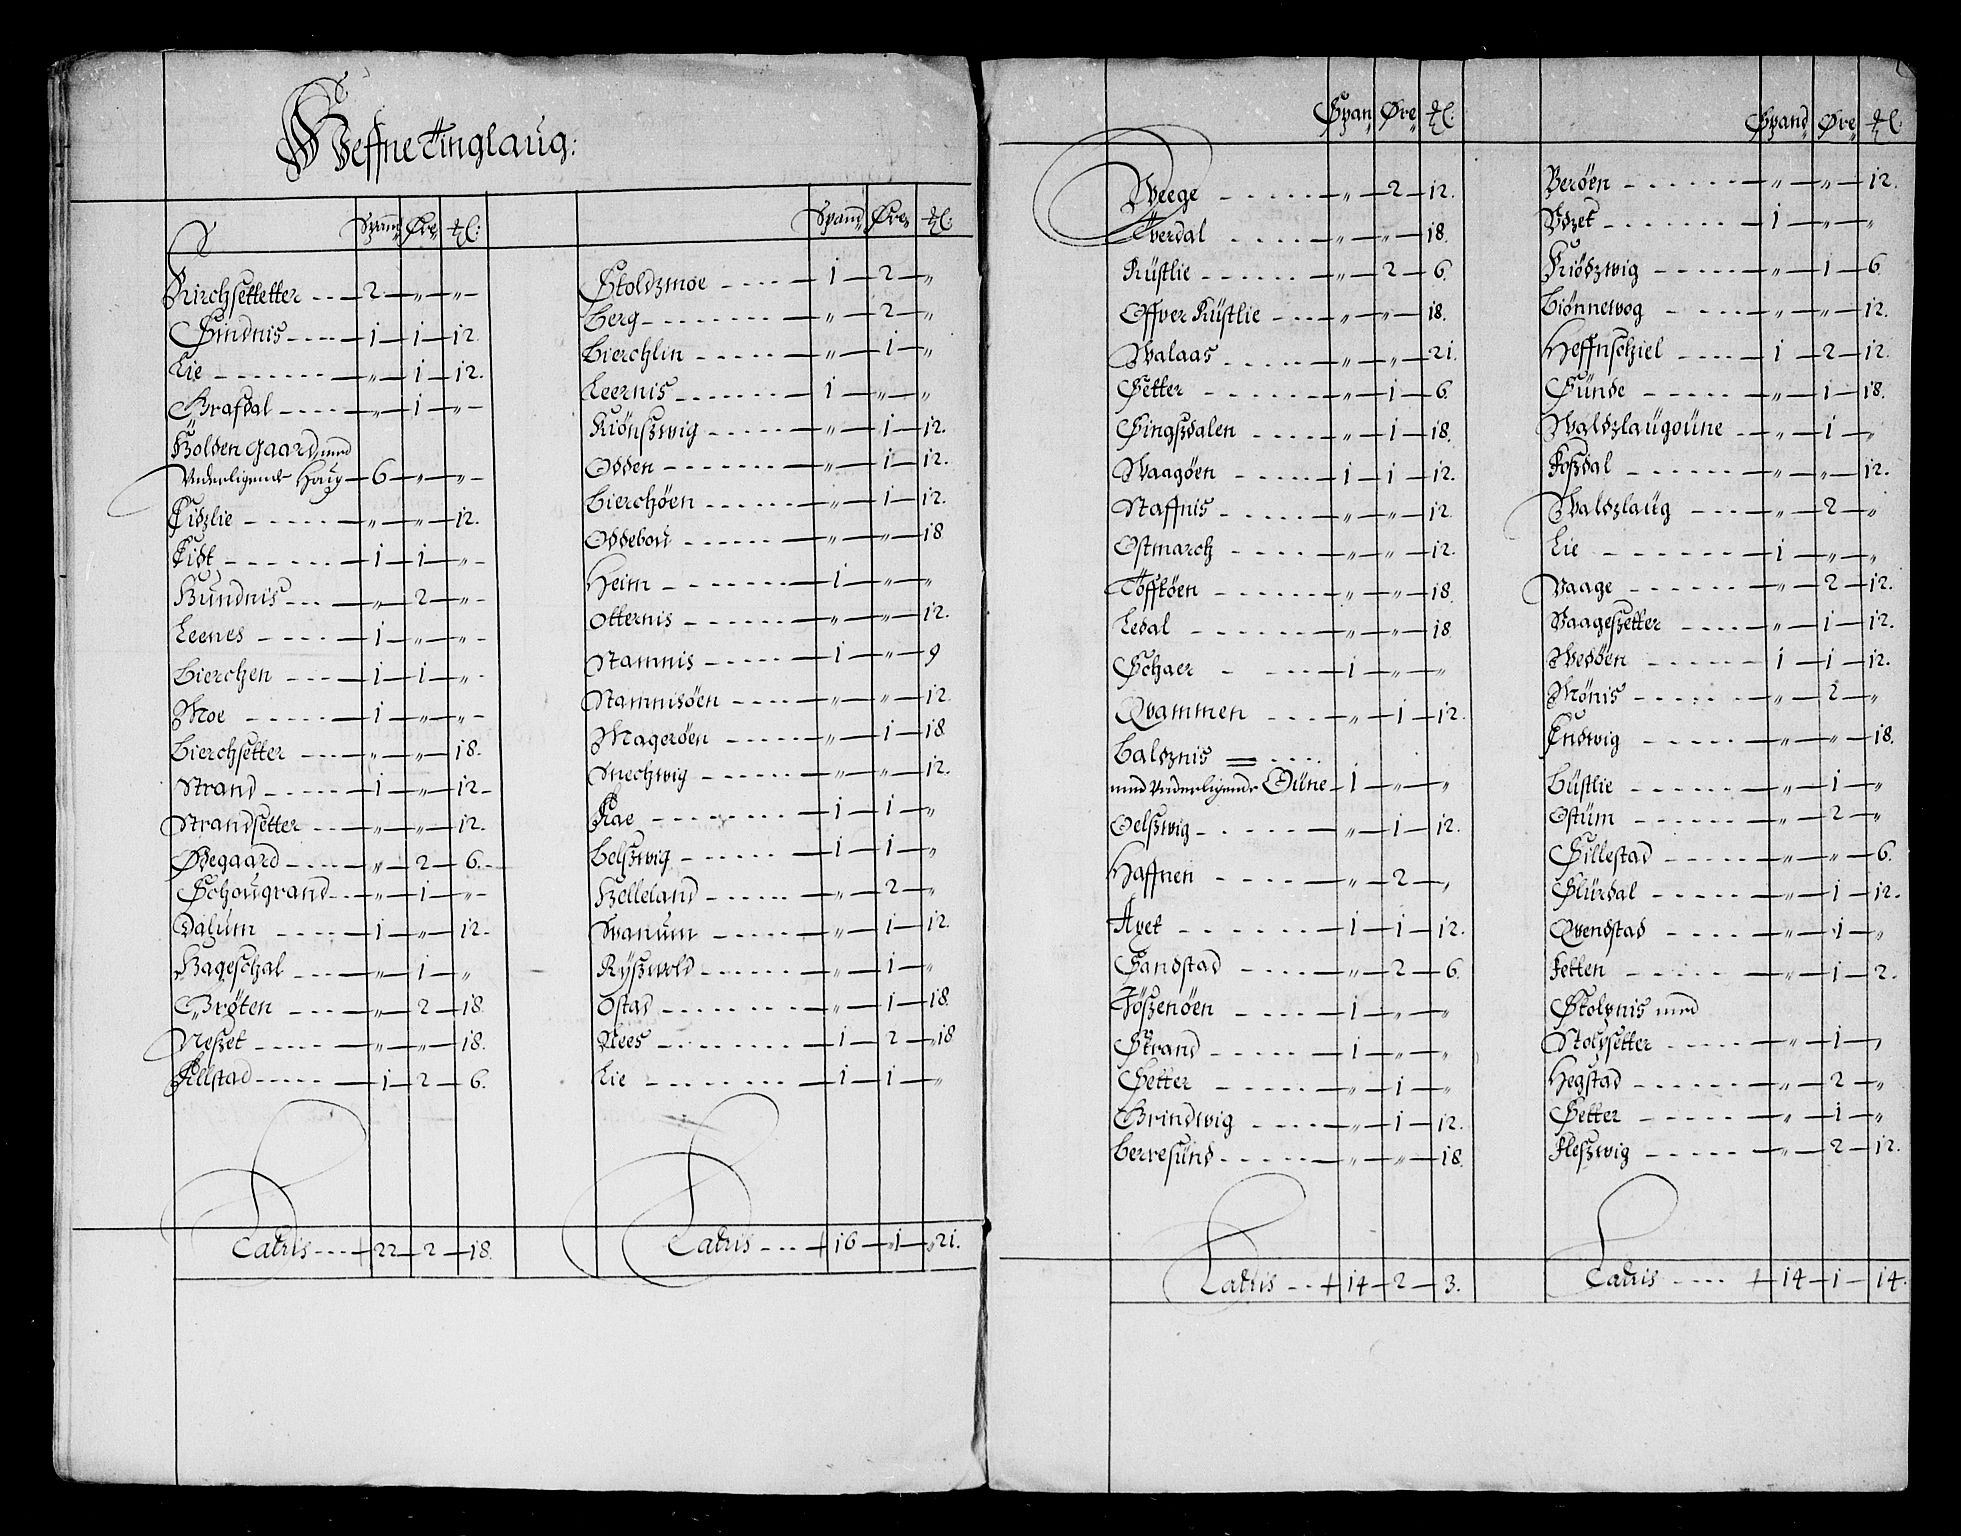 Heffne Tinglaug:
Spand Øre ℔:
Kirchsettetter - - - 2 - „ - „ -
Sindnis - - - - 1 - 1 - 12.
Lie - - - - „ - 1 - 12.
Grafdal - - - - „ - 1 - „ -
Holden Gaard, med
Underligende Haug - 6 - „ - „ -
Lidzlie - - - - „ - „ - 12.
Lidt - - - - 1 - 1 - „ -
Hundnis - - - „ - 2 - „ -
Leenes - - - - 1 - „ - „ -
Bierchen - - - 1 - 1 - „ -
Moe - - - - 1 - „ - „ -
Bierchsetter - - - - „ - „ - 18.
Strand - - - - 1 - „ - 12 -
Strandsetter - - - „ - „ - 12.
Ødegaard - - - - „ - 2 - 6. -
Schougrand - - „ - 1 - „ -
Dalum - - - - 1 - „ - 12 -
Hageschal - - - - „ - 1 - „
Brøten - - - - „ - 2 - 18.
Neszet - - - - „ - „ - 18.
Fillstad - - - - 1 - 2 - 6.
Latris - - - 22 - 2 - 18.
Spand Øre ℔:
Stoldzmoe - - - - 1 - 2 - „
Berg - - - - „ - 2 - „
Bierchlin - - - - „ - 1 - „
Leernis - - - - 1 - „ - „
Kiönszwig - - - - „ - 1 - 12.
Odden - - - - „ - 1 - 12.
Bierchöen - - - - „ - 1 - 12.
Oddebou - - - - „ - „ - 18
Heim - - - - 1 - „ - „
Otternis - - - - „ - „ - 12.
Stamnis - - - - 1 - „ - 9
Stamnisöen - - - - „ - „ - 12.
Mageröen - - - - „ - 1 - 18
Snechwig - - - - „ - „ - 12.
Kae - - - - 1 - 1 - „
Belszwig - - - - 1 - 1 - „
Helleland - - - - „ - 2 - „
Svanum - - - - „ - 1 - 12.
Ryszwold - - - - „ - 1 - „
Ostad - - - - „ - 1 - 18.
Nees - - - - 1 - 2 - „18
Lie - - - - 1 - 1 - „
Latris - - - 16 - 1 - „21.
Span Øre ℔:
Weege - - - - „ - 2 - 12.
Tverdal - - - - „ - „ - 18.
Rüstlie - - - - „ - 2 - 6.
Offver Rüstlie - - - „ - „ - 18.
Walaas - - - - „ - „ - 21.
Setter - - - - „ - 1 - 6.
Singszdalen - - - - „ - 1 - 18.
Waagöen - - - - 1 - 1 - 12.
Staffnis - - - - „ - „ - 12.
Ostmarch - - - - „ - „ - 12.
Töfftöen - - - - „ - „ - 18.
Ledal - - - - „ - „ - 18.
Schaer - - - - 1 - „ - „
Qvammen - - - - „ - 1 - 12.
Baldznis = - - - -
med Underligende Öüne - 1 - „ - „
Oelszwig - - - - „ - 1 - 12.
Haffnen - - - - „ - 2 - „
Ayet - - - - 1 - 1 - 12.
Sandstad - - - - „ - 2 - 6.
Jöszenöen - - - - 1 - „ - „
Strand - - - - 1 - „ - „
Setter - - - - „ - 1 - „
Brindwig - - - - „ - 1 - 12.
Berresünd - - - - „ - „ - 18.
Latris - - - 14 - 2 - 3.
Spand Øre ℔:
Beröen - - - - „ - „ - 12.
- - - - 1 - „ - „
Kiödzwig - - - - „ - 1 - 6
Biönnewog - - - - „ - „ - 12.
Heffnschiel - - - - 1 - 2 - 12.
Sünde - - - - „ - 1 - 18.
Waldzlaugöüne - - „ - 1 - „
Foszdal - - - - „ - „ - 12.
Waldzlaug - - - - „ - 2 - „
Lie - - - - 1 - „ - „
Vaage - - - - „ - 2 - 12.
Vaageszetter - - - - „ - 1 - 12.
Wedöen - - - - 1 - 1 - 12.
Mönis - - - - „ - 2 - „
Lndwig - - - - „ - „ - 18.
Büstlie - - - - „ - 1 - „
Ostüm - - - - „ - 2 - „
Sillestad - - - - „ - „ - 6.
Slürdal - - - - „ - 1 - 12.
Qvendstad - - - - „ - 1 - „
Fetten - - - - „ - 1 - 2.
Stolpnis med
Stolpsetter - - - - „ - 1 - „
Hegstad - - - - „ - 2 - „
Setter - - - - „ - 1 - „
Fleszwig - - - - „ - 2 - 12.
Latris - - - - 14 - 1 - 14.